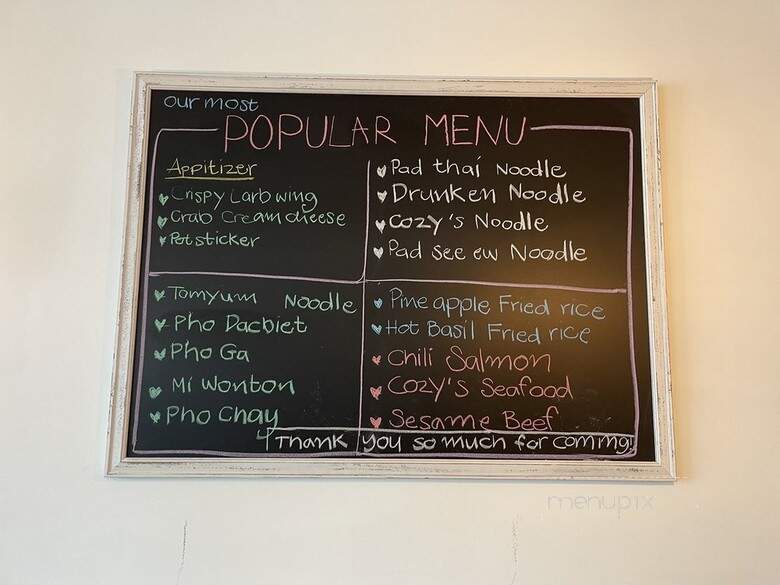 our most
POPULAR MENU
Appitizer
Crispy Larb wing
Crab Cream cheese
Potsticker
Pad thai Noodle
Drunken Noodle
Cozy's Noodle
Pad See ew Noodle
Tomyum Noodle
Pho Dacbiet
Pho Ga
Mi Wonton
Pho Chay
Pine apple Fried rice
Hot Basil Fried rice
Chili Salmon
Cozy's Seafood
Sesame Beef
Thank you so much for coming!
menupix